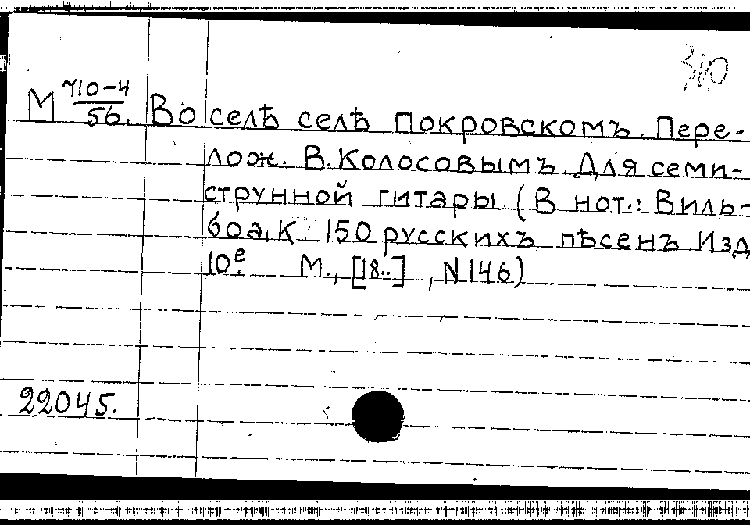 310
М 710-4/56. Во селѣ селѣ Покровскомъ. Пере-
лож. В. Колосовымъ. Для семи-
струнной гитары (В нот.: Виль-
боа, К 150 русскихъ пѣсенъ Изд
10е. М., [18..], N 146)
22045.